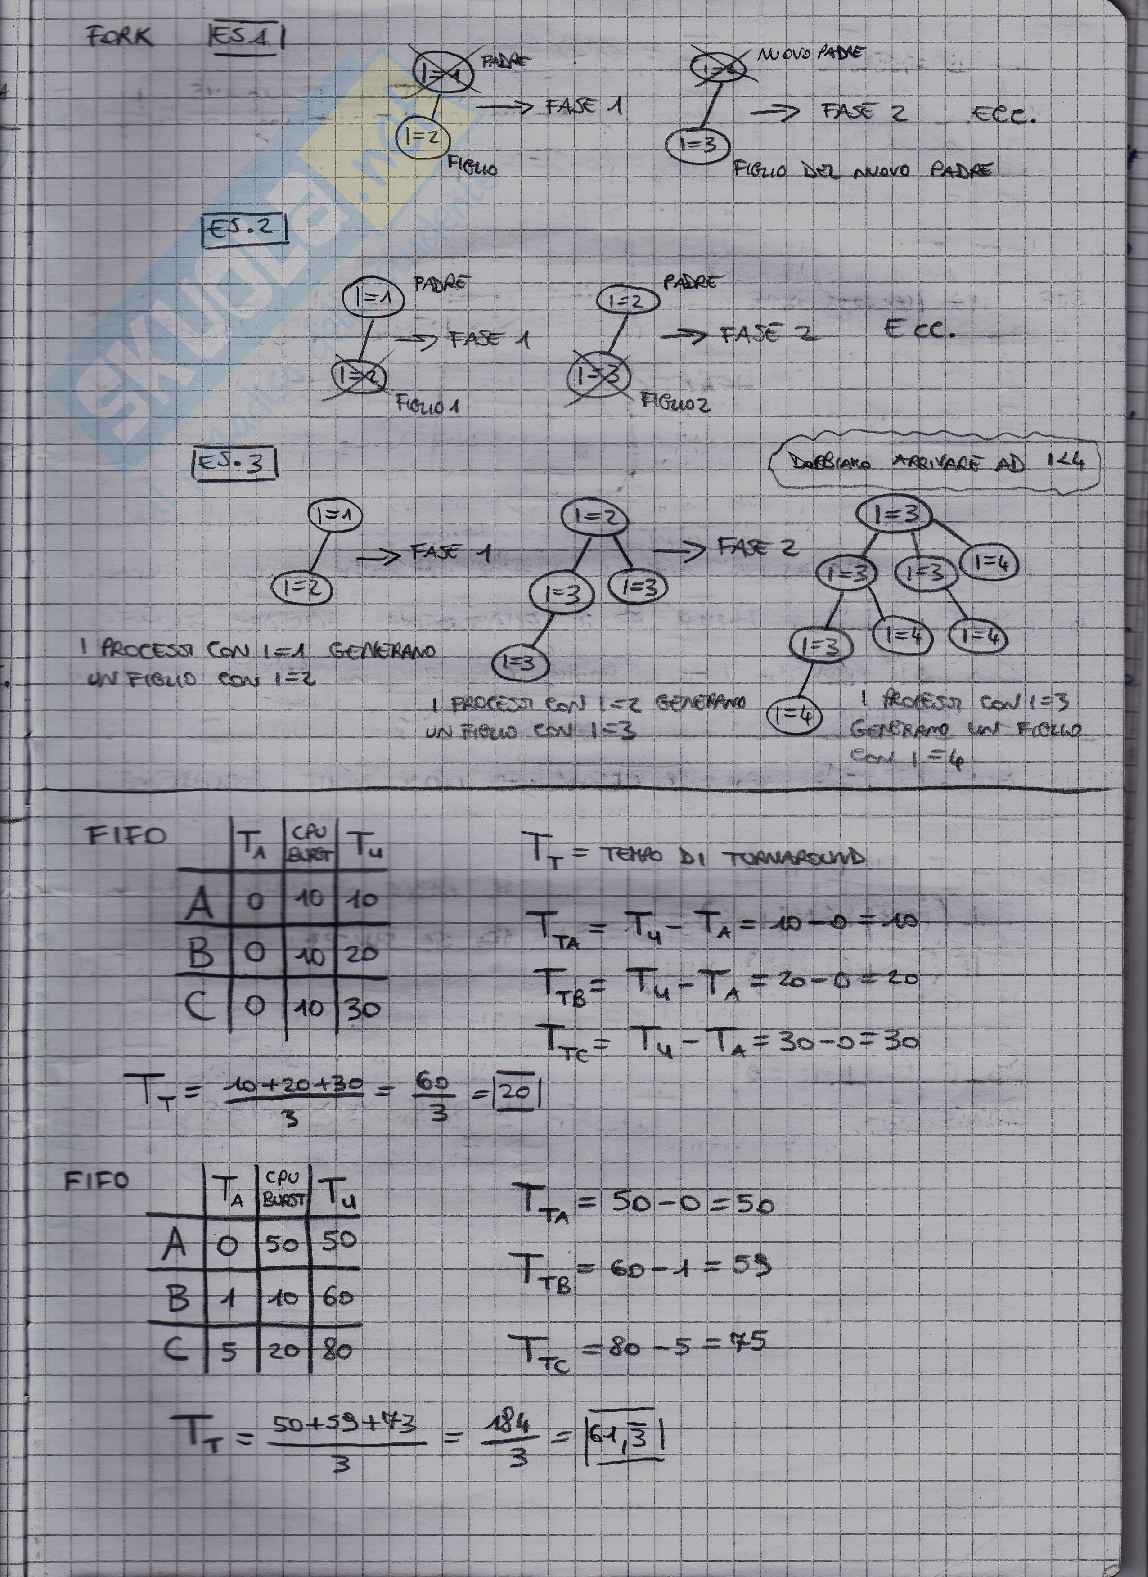 FORK ES.1
I=1 PADRE
I=2 FIGLIO
→ FASE 1
NUOVO PADRE
I=3 FIGLIO DEL NUOVO PADRE
→ FASE 2 ECC.
ES.2
I=1 PADRE
I=2 FIGLIO 1
→ FASE 1
I=2 PADRE
I=3 FIGLIO 2
→ FASE 2 ECC.
ES.3
DOBBIAMO ARRIVARE AD I<4
I=1
I=2
→ FASE 1
I=2
I=3 I=3
I=3
→ FASE 2
I=3
I=3 I=3 I=4
I=3 I=4 I=4
I=4
I PROCESSI CON I=1 GENERANO
UN FIGLIO CON I=2
I PROCESSI CON I=2 GENERANO
UN FIGLIO CON I=3
I PROCESSI CON I=3
GENERANO UN FIGLIO
CON I=4
FIFO TA CPU BURST TU
A 0 10 10
B 0 10 20
C 0 10 30
TT = TEMPO DI TURNAROUND
TTA = TU - TA = 10-0 = 10
TTB = TU - TA = 20-0 = 20
TTC = TU - TA = 30-0 = 30
TT = 10+20+30/3 = 60/3 = 20
FIFO TA CPU BURST TU
A 0 50 50
B 1 10 60
C 5 20 80
TTA = 50-0 = 50
TTB = 60-1 = 59
TTC = 80-5 = 75
TT = 50+59+73/3 = 184/3 = 61,3
SKUOLA